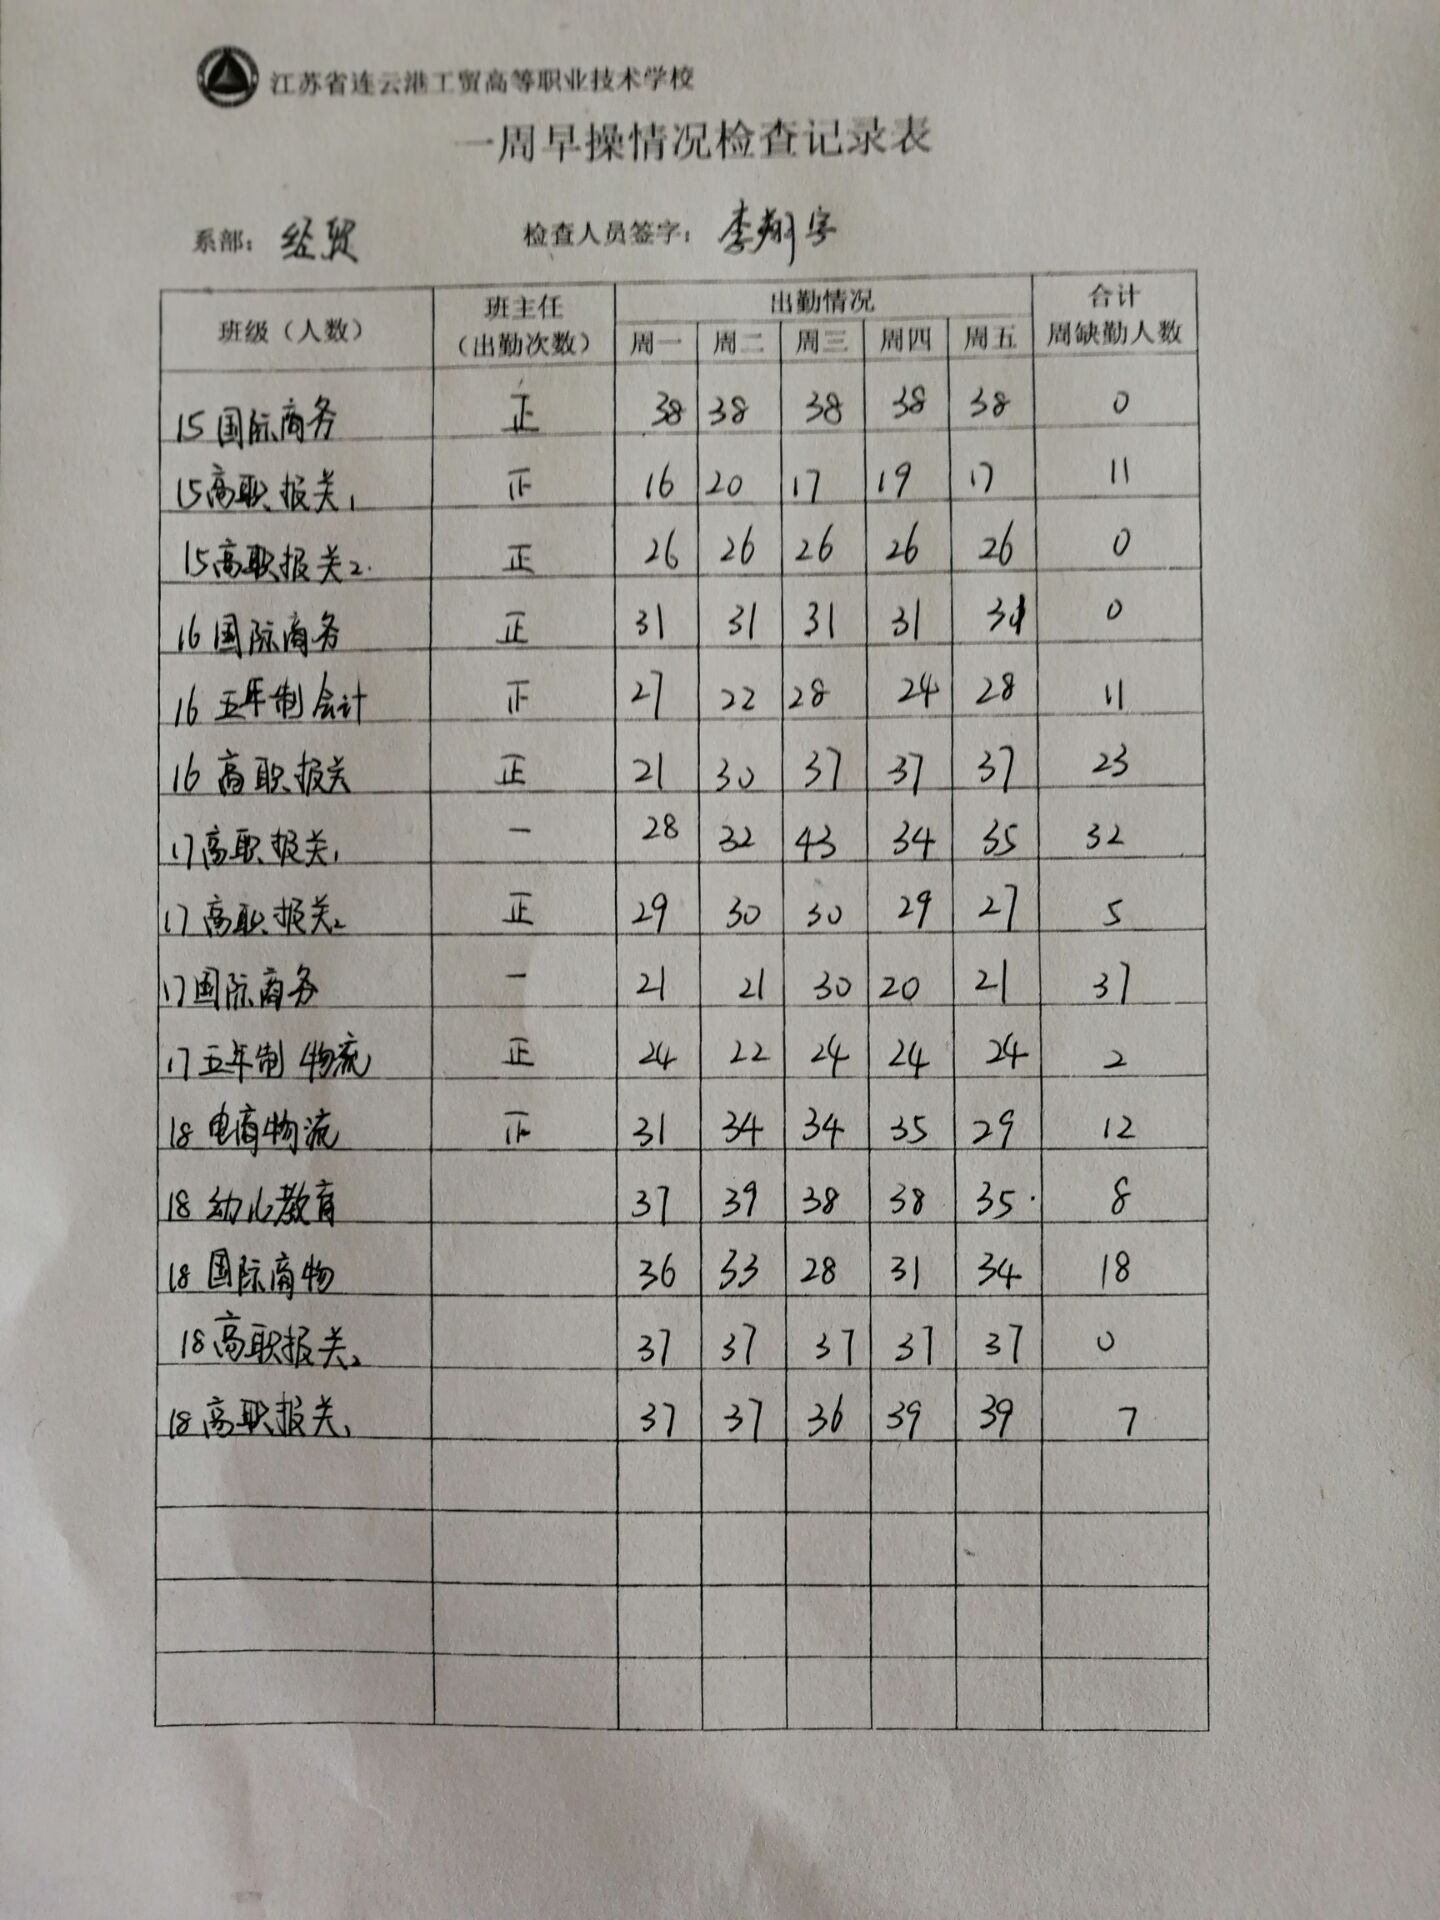 江苏省连云港工贸高等职业技术学校
一周早操情况检查记录表
系部：经贸 检查人员签字：李翔宇
班级（人数） 班主任（出勤次数） 出勤情况 合计周缺勤人数
周一 周二 周三 周四 周五
15国际商务 正 38 38 38 38 38 0
15高职报关1 正 16 20 17 19 17 11
15高职报关2. 正 26 26 26 26 26 0
16国际商务 正 31 31 31 31 31 0
16五年制会计 正 27 22 28 24 28 11
16高职报关 正 21 30 37 37 37 23
17高职报关1 一 28 32 43 34 35 32
17高职报关2 正 29 30 30 29 27 5
17国际商务 一 21 21 30 20 21 37
17五年制物流 正 24 22 24 24 24 2
18电商物流 正 31 34 34 35 29 12
18幼儿教育 37 39 38 38 35 8
18国际商物 36 33 28 31 34 18
18高职报关2 37 37 37 37 37 0
18高职报关1 37 37 36 39 39 7